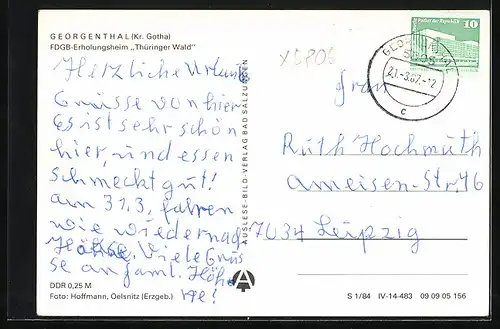 GEORGENTHAL (Kr. Gotha)
FDGB-Erholungsheim „Thüringer Wald"
Herzliche Urlaubs
Grüsse von hier
Es ist sehr schön
hier, und essen
schmeckt gut!
am 31,3, fahren
wir wieder nach
Viele Grüs
se an faml. Höhn
DDR 0,25 M
Foto: Hoffmann, Oelsnitz (Erzgeb.)
AUSLESE-BILD-VERLAG BAD SALZUNGEN
x5806
10
5805
21.-3.87.-12
c
Frau
Ruth Hochmuth
Ameisen-Str, 46
7034 Leipzig
S 1/84 IV-14-483 09 09 05 156